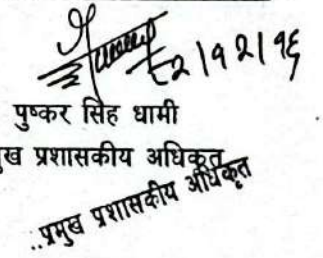 २|१२|१६
पुष्कर सिंह धामी
ख प्रशासकीय अधिकृत
..प्रमुख प्रशासकीय अधिकृत